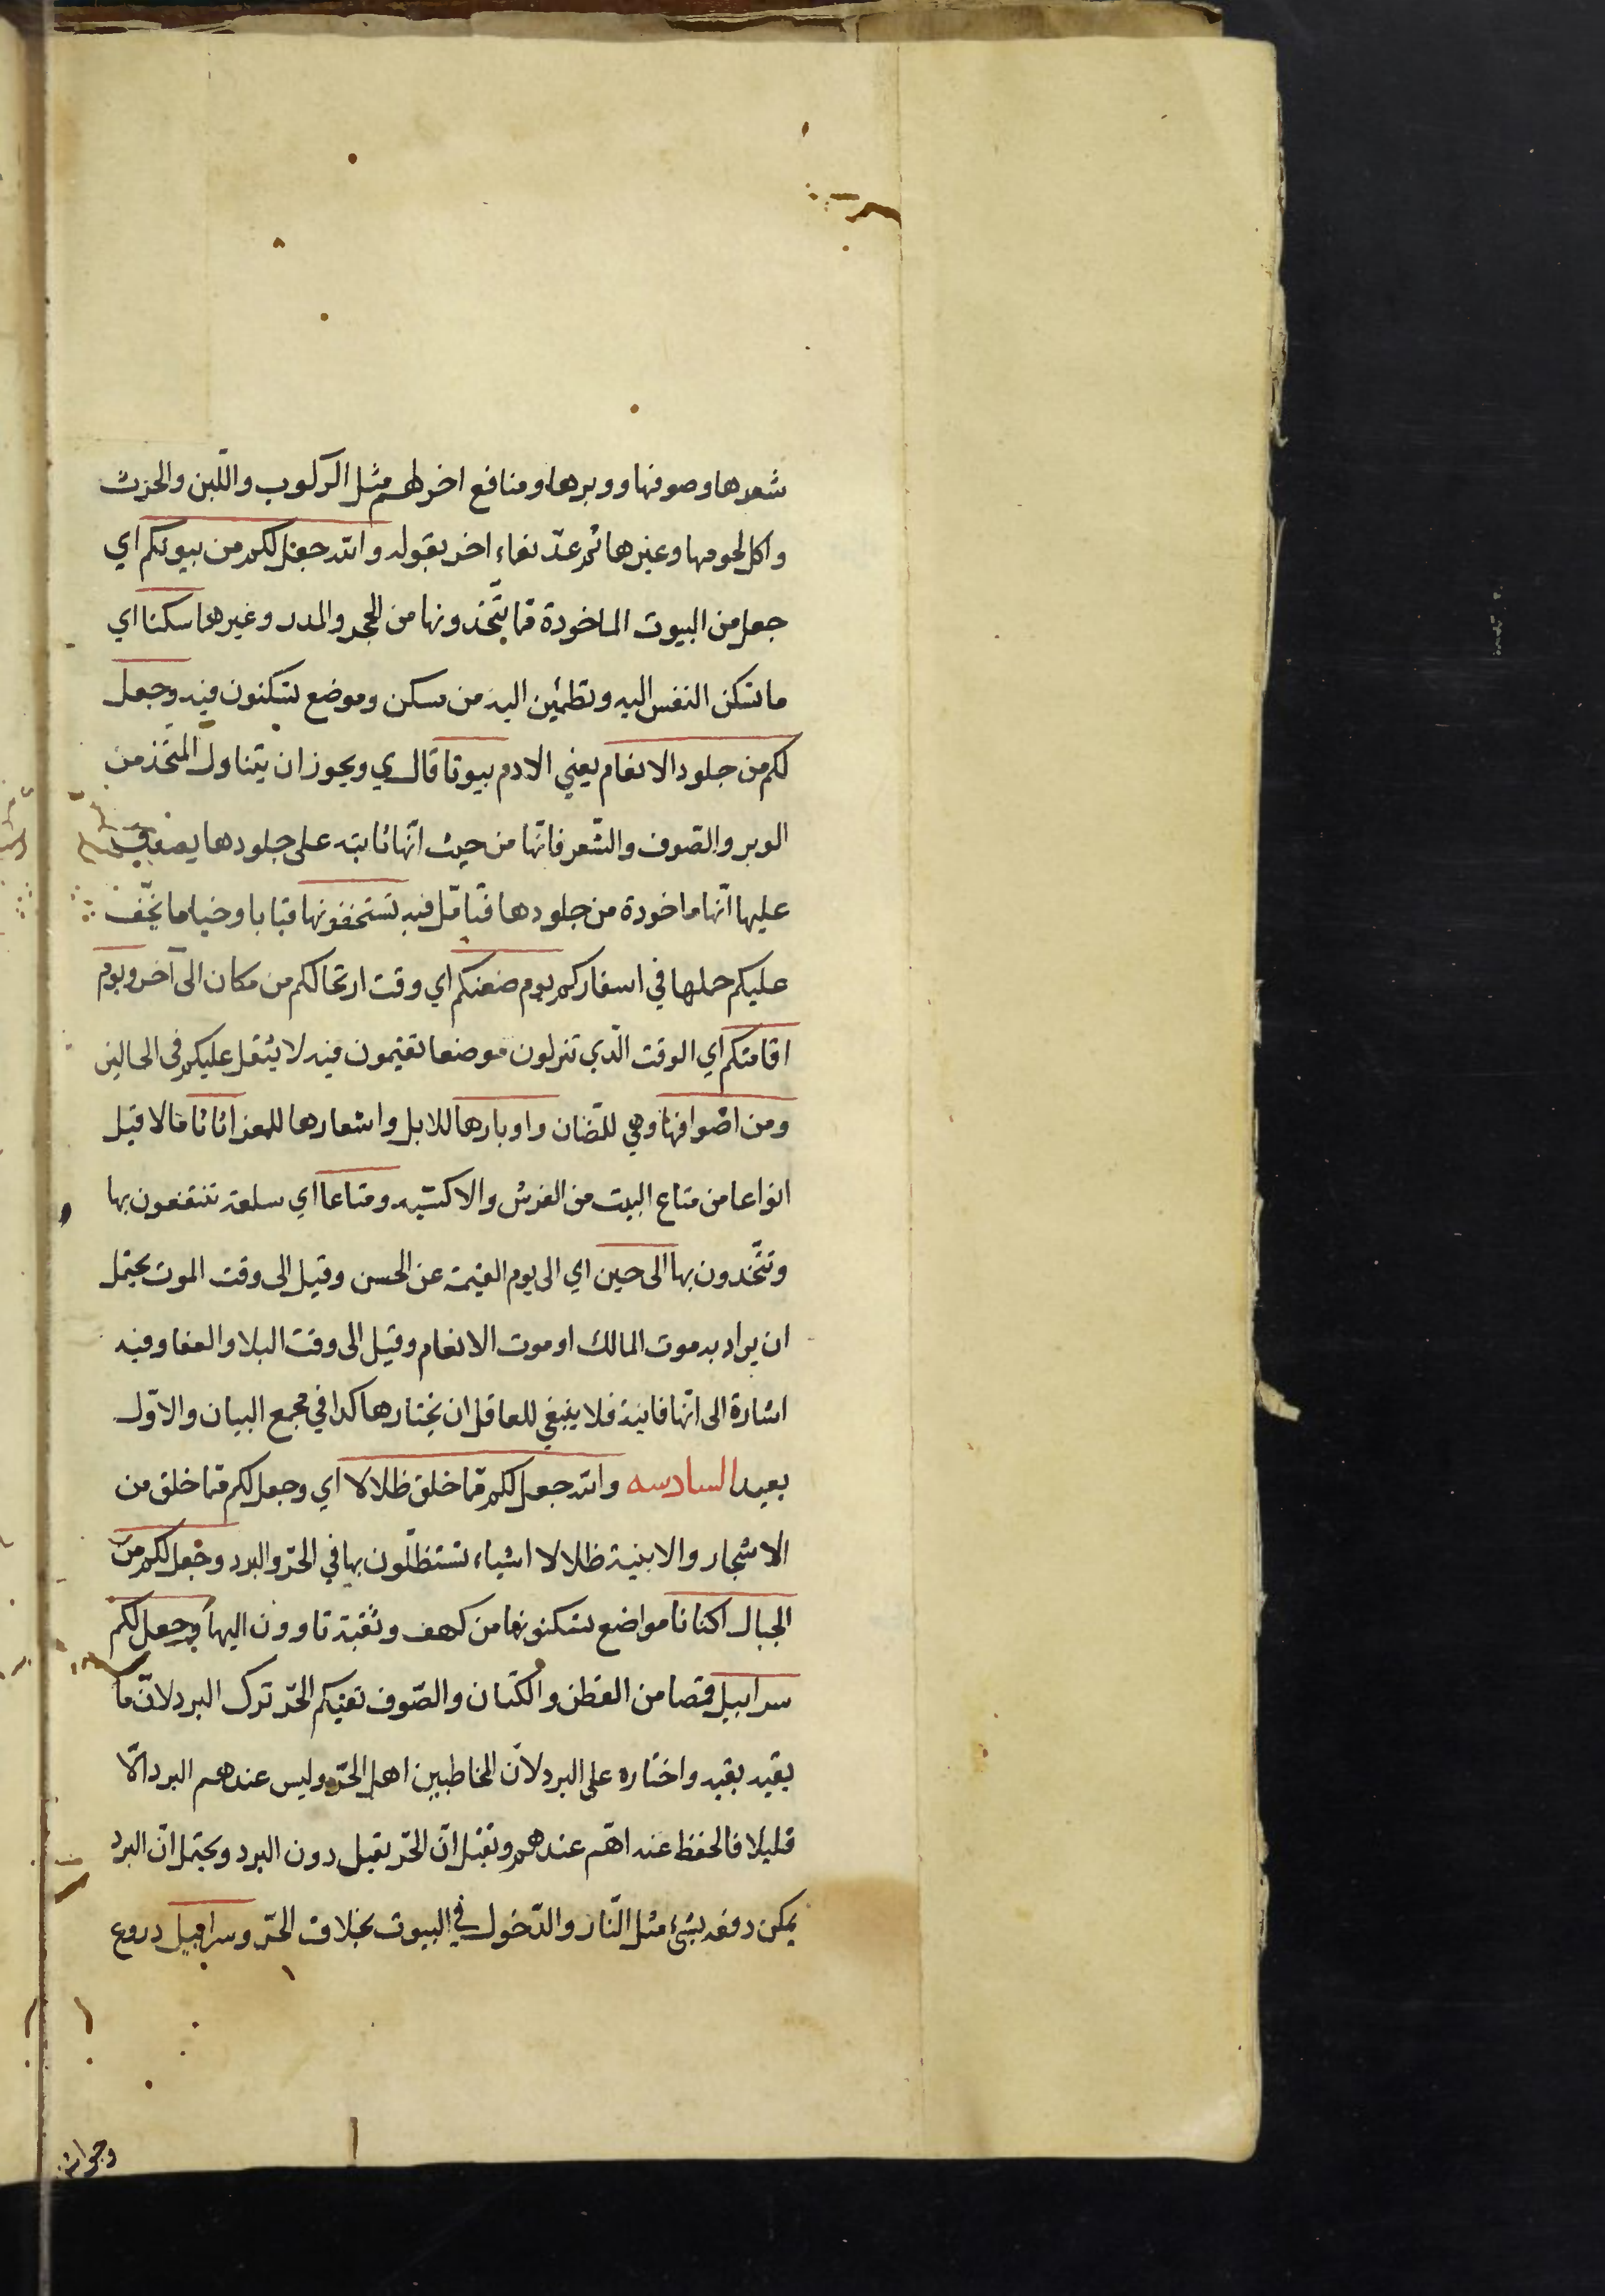 شعرها وصوفها ووبرها ومنافع اخر لهم مثل الركوب واللّبن والحرث
واكل لحومها وغيرها ثم عدّ نعماء اخر بقوله والله جعل لكم من بيوتكم اي
جعل من البيوت الماخوذة ممّا يتّخذونها من الحجر والمدر وغيرهما سكنا اي
ما تسكن النفس اليه وتطمئن اليه من سكن وموضع تسكنون فيه وجعل
لكم من جلود الانعام يعني الادم بيوتا قال ي ويجوز ان يتناول المتّخذ من
الوبر والصّوف والشّعر فانّها من حيث انّها نابتة على جلودها يصدق
عليها انّها ماخوذة من جلودها فتامّل فيه تستخفونها قبابا وخياما يخفّ
عليكم حملها في اسفاركم يوم ضعنكم اي وقت ارتحالكم من مكان الى آخر ويوم
اقامتكم اي الوقت الّذي تنزلون موضعا تقيمون فيه لا يثقل عليكم في الحالين
ومن اصوافها وهي للضّان واوبارها للابل واشعارها للمعز اثاثا مالا قيل
انواعا من متاع البيت من الفرش والاكسية ومتاعا اي سلعة تنتفعون بها
وتتّخذون بها الى حين اي الى يوم القيمة عن الحسن وقيل الى وقت الموت يحتمل
ان يراد به موت المالك او موت الانعام وقيل الى وقت البلا والفنا وفيه
اشارة الى انّها فانية فلا ينبغي للعاقل ان يختارها كذا في مجمع البيان والاوّل
بعيد السادسه والله جعل لكم ممّا خلق ظلالا اي وجعل لكم ممّا خلق من
الاشجار والابنية ظلالا اشياء تستظلّون بها في الحرّ والبرد وجعل لكم من
الجبال اكنانا مواضع تسكنونها من كهف وثقبة تاوون اليها وجعل لكم
سرابيل قمصا من القطن والكتان والصّوف تقيكم الحرّ ترك البرد لانّ ما
يقيه يقيه واختاره على البرد لانّ المخاطبين اهل الحرّ وليس عندهم البرد الّا
قليلا فالحفظ عنه اهّم عندهم ونقيل انّ الحرّ يقتل دون البرد ويحتمل انّ البرد
يمكن دفعه بشيء مثل النّار والدّخول في البيوت بخلاف الحرّ وسرابيل دروع